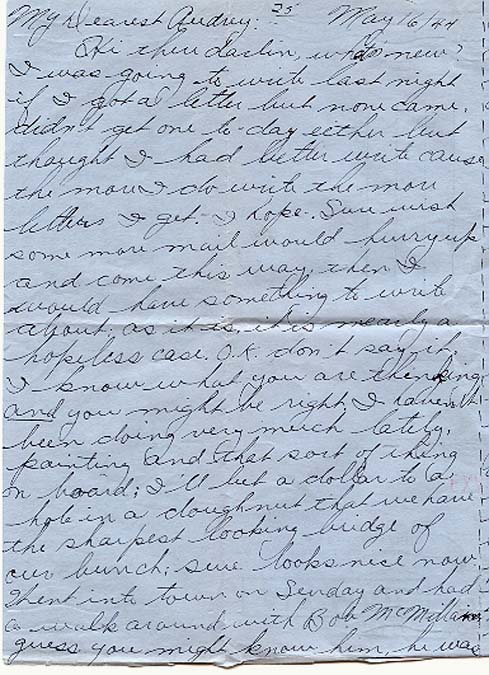 My Dearest Audrey: 25 May 16/44
Hi then darlin, wats new?
I was going to write last night
if I got a letter but none came,
didn't get one to-day eether but
thought I had better write cause
the more I do write the more
letters I get - I hope. Sure wish
some more mail would hurry up
and come this way, then I
would have something to write
about, as it is, it is nearly a
hopeless case. O.K. don't say it,
I know what you are thenking
and you might be right, I haven't
been doing very much lately,
painting and that sort of thing
on board; I'll bet a dollar to a
hole in a doughnut that we have
the sharpest looking bridge of
our bunch; sure looks nice now.
Went into town on Sunday and had
a walk around with Bob McMillan,
guess you might know him, he was